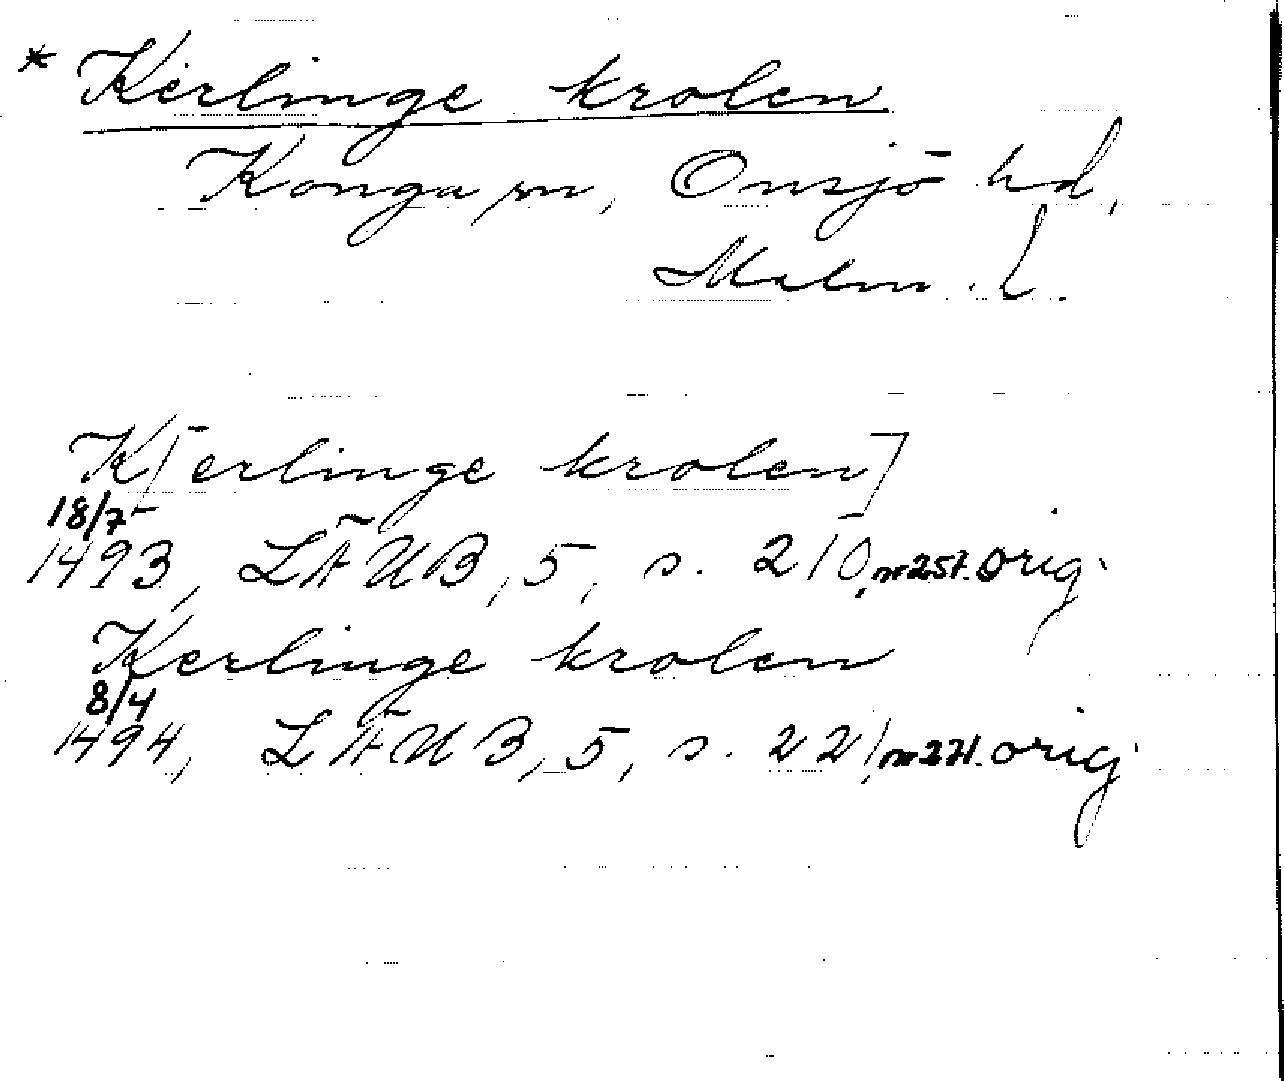 * Kerlinge krolen
Konga sn, Onsjö hd,
Malm. l.
K[erlinge krolen]
18/7
1493, LÄUB, 5, s. 210, nr 251. orig.
Kerlinge krolen
8/4
1494, LÄUB, 5, s. 221, nr 271. orig.